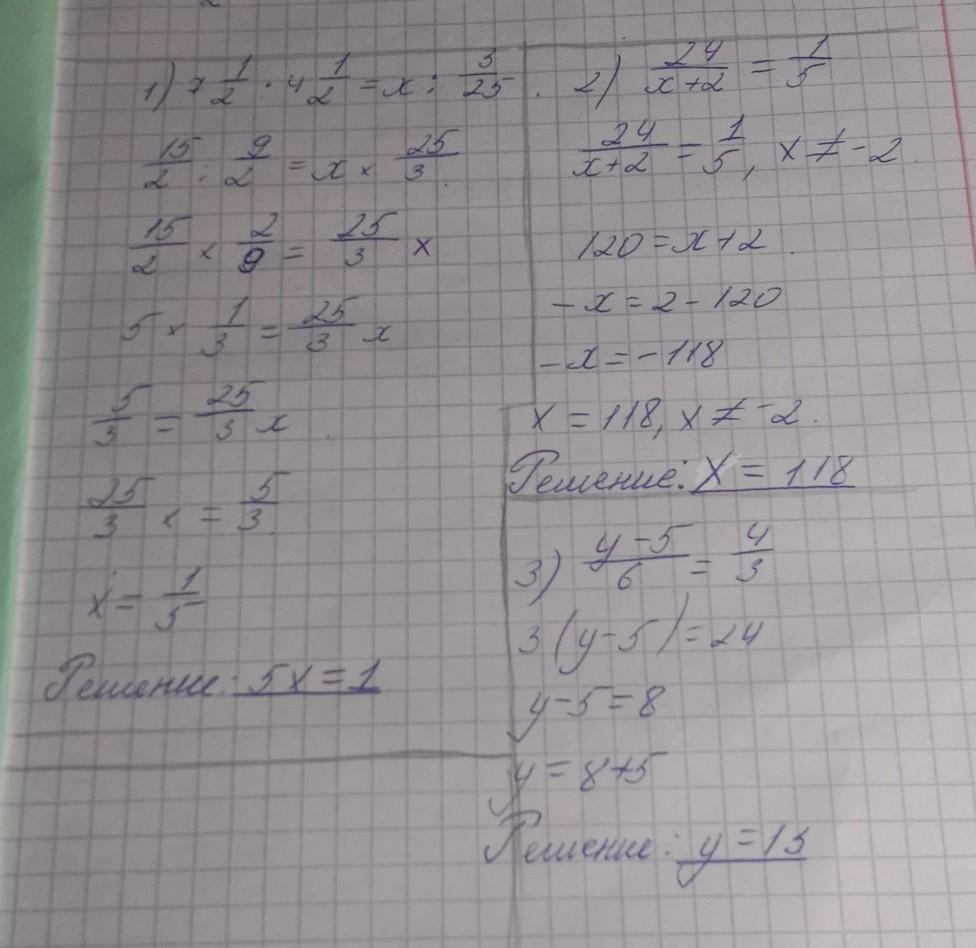 1) 7 1/2 : 4 1/2 = x : 3/25.
15/2 : 9/2 = x × 25/3.
15/2 × 2/9 = 25/3 x
5 × 1/3 = 25/3 x
5/3 = 25/3 x.
25/3 x = 5/3
x = 1/5
Решение: 5x = 1
2) 24/(x+2) = 1/5
24/(x+2) = 1/5, x ≠ -2.
120 = x+2.
-x = 2 - 120
-x = -118
x = 118, x ≠ -2.
Решение: x = 118
3) (y-5)/6 = 4/3
3(y-5) = 24
y-5 = 8
y = 8+5
Решение: y = 13